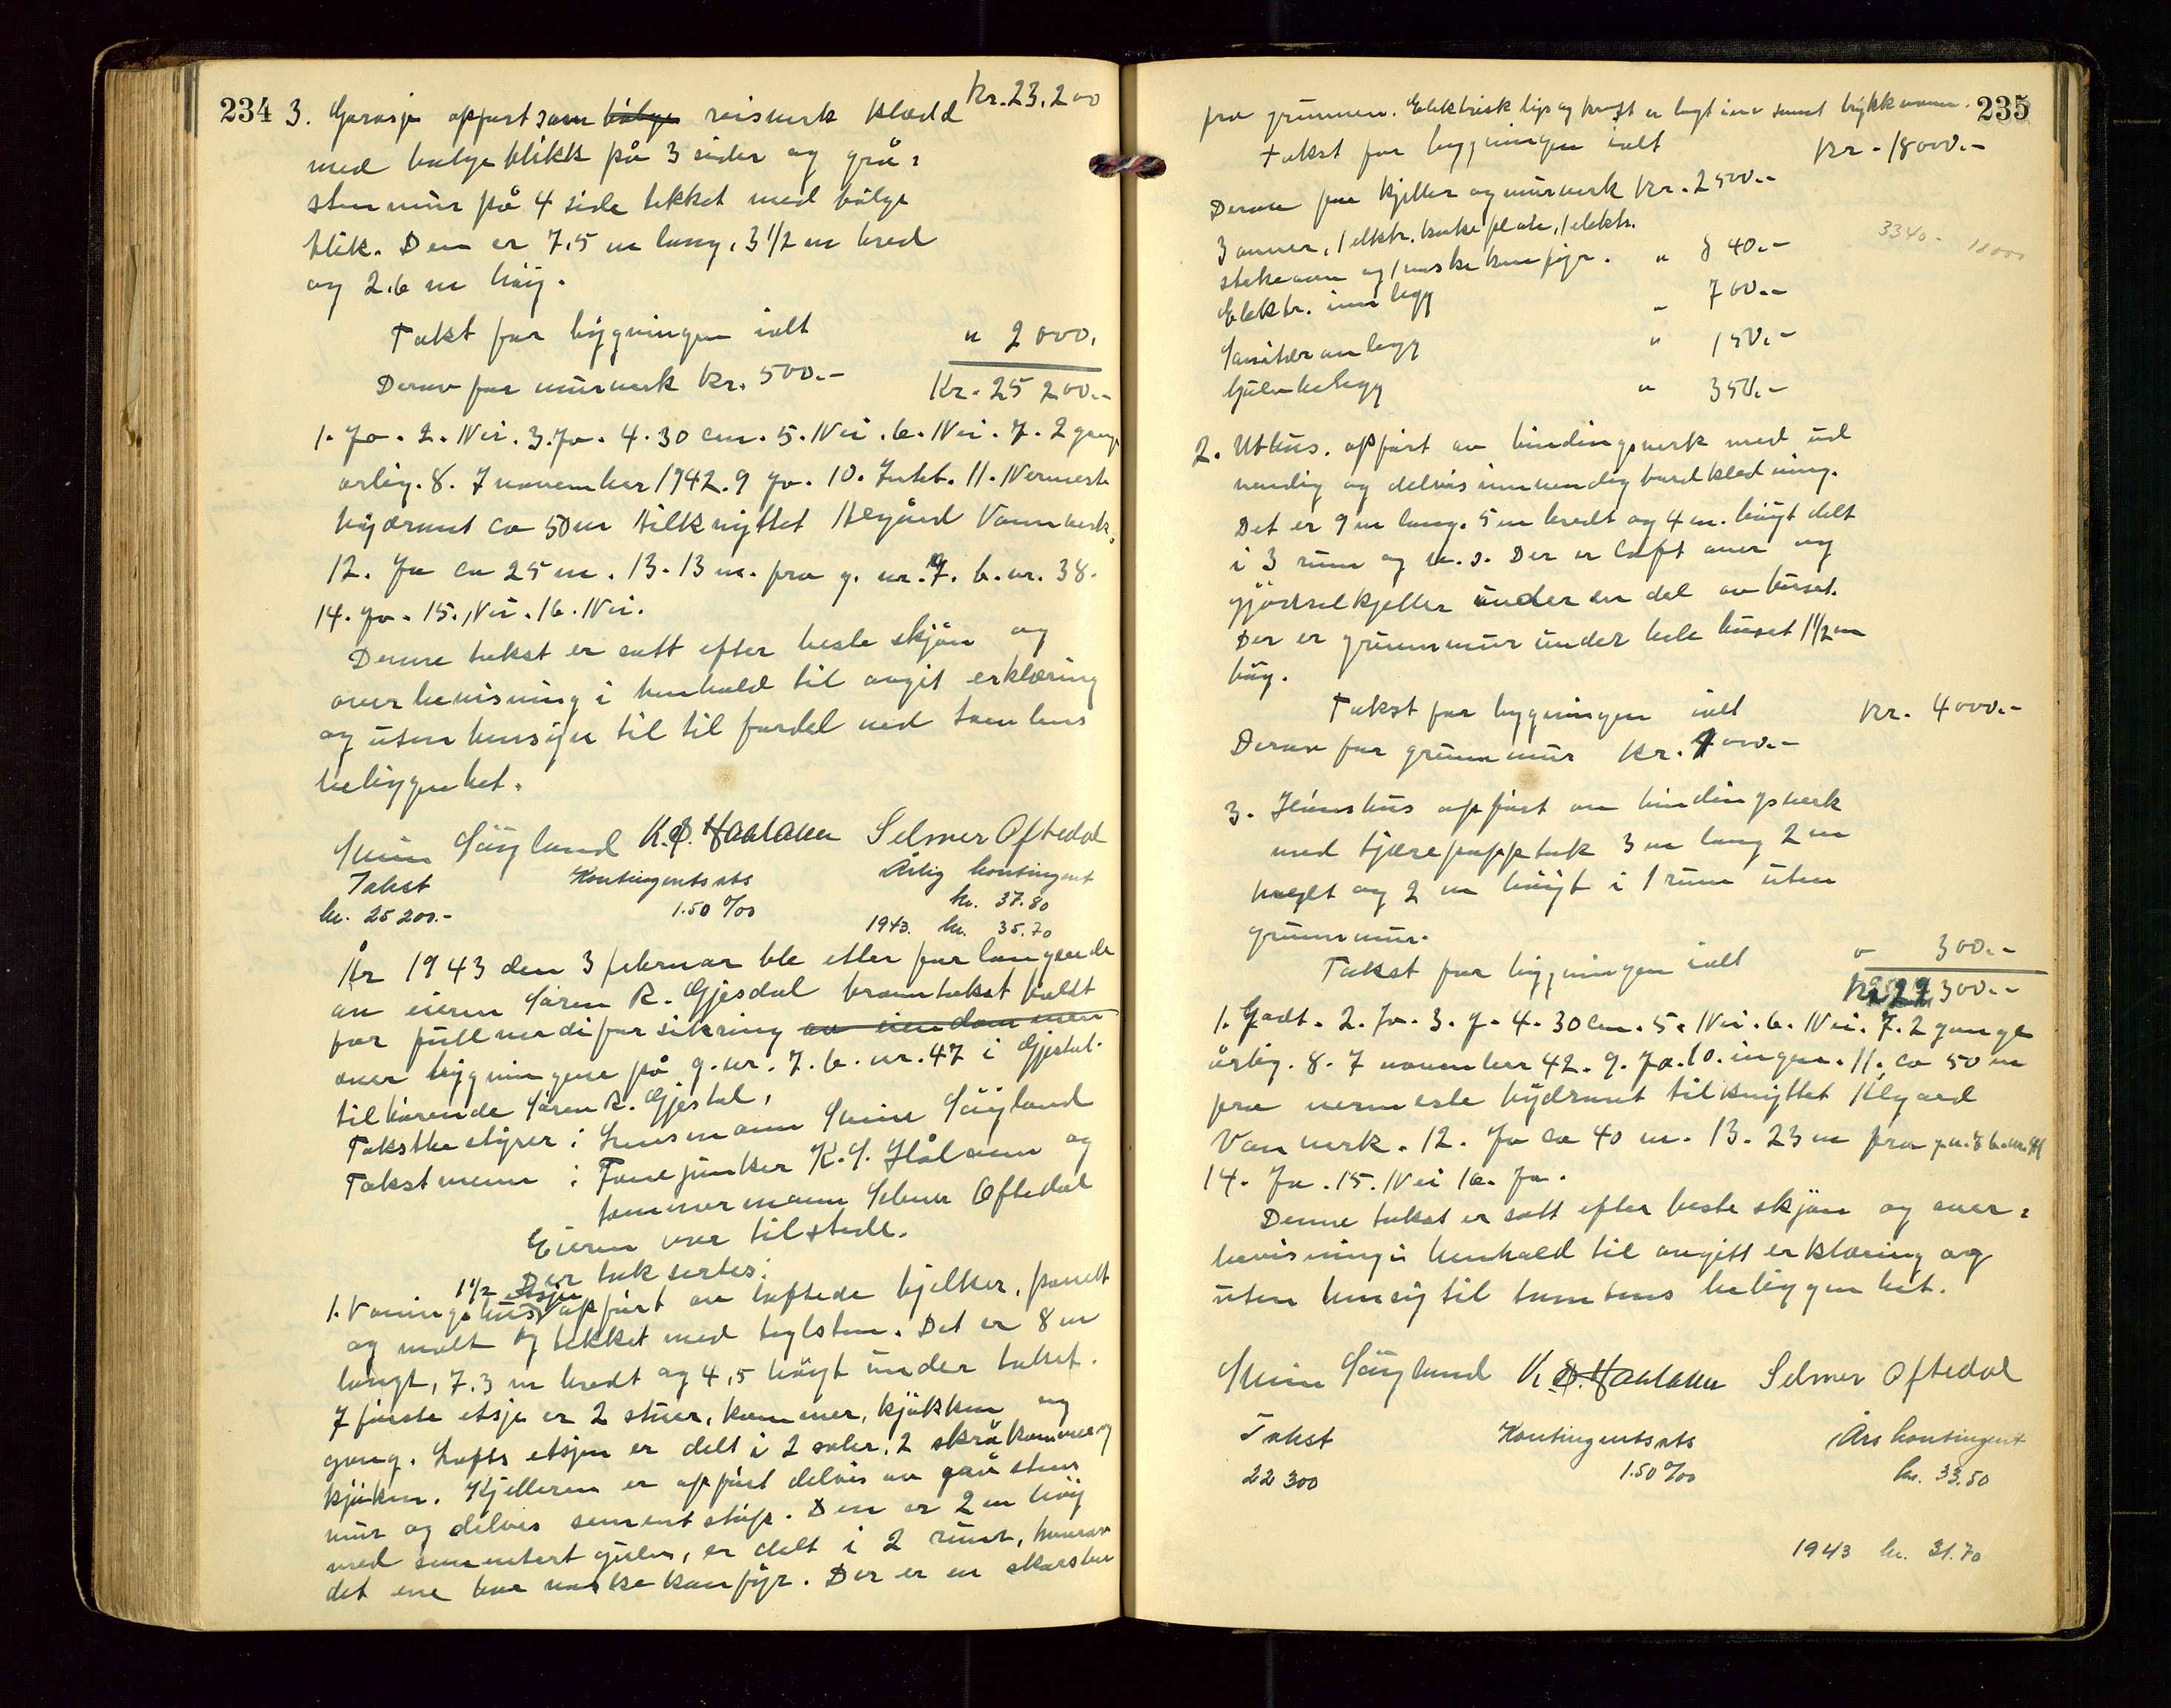 234
Kr. 23.200
3. Garasje opført som bølge reisverk klædd
med bølge blikk på 3 sider og grå=
sten mur på 4 side tekket med bølge
blik. Den er 7,5 m lang, 3 1/2 m bred
og 2,6 m høig.
Takst for bygningen ialt " 2 000.
Derav for murverk Kr. 500.- Kr. 25 200.-
1. Ja. 2. Nei. 3. Ja. 4. 30 cm. 5. Nei. 6. Nei. 7. 2 gange
årlig. 8. 7 november 1942. 9 Ja. 10. 11. Nermeste
hydrant ca 50 m tilknyttet Ålgård Vannverk.
12. Ja ca 25 m. 13. 13 m. fra g. nr. 7. b. nr. 38.
14. Ja. 15. Nei. 16. Nei.
Denne takst er satt efter beste skjøn og
overbevisning i henhold til avgit erklæring
og uten hensyn til til fordel ved tomtens
beliggenhet.
Svein Søyland K. S. Haalann Selmer Oftedal
Takst Kontingentsats Årlig kontingent
kr. 25 200.- 1.50 ‰ kr. 37.80
1943. kr. 35.70
År 1943 den 3 februar ble etter forlangende
av eieren Søren R. Gjesdal branntakst holdt
for fullverdiforsikring av eiendommen
over bygningene på g. nr. 7. b. nr. 47 i Gjestal.
tilhørende Søren R. Gjestal,
Takstbestyrer: Lensmann Svein Søyland
Takstmenn: Fanejunker K. S. Hålann og
tømmermann Selmer Oftedal
Eieren var tilstede.
Der takseres:
1 1/2 etsje
1. Vaningshus opført av loftede bjelker, panelt
og malt og tekket med teglsten. Det er 8 m
langt, 7.3 m bredt og 4,5 høgt under taket.
I første etsje er 2 stuer, kammer, kjøkken og
gang. Lofts etsjen er delt i 2 saler, 2 skråkammer og
kjøken. Kjelleren er opført delvis av gråstens
mur og delvis sementstøp. Den er 2 m høy
med sementert gulv, er delt i 2 rum, hvorav
det ene har vaskekomfyr. Der er en skorsten
235
fra grunnen. Elektrisk lys og kraft er lagt inn samt trykkvann.
Takst for bygningen ialt Kr. 18000.-
Derav for kjeller og murverk Kr. 2500.-
3340.- 18000
3 ovner, 1 elktr. kokeplate, 1 elektr.
stekeovn og 1 vaskekomfyr. " 840.-
Elektr. innlegg " 700.-
Sanitæranlegg " 150.-
Gulvbelegg " 350.-
2. Uthus. opført av bindingsverk med ud
vendig og delvis innvendig bordkledning.
Det er 9 m lang. 5 m bredt og 4 m. høgt delt
i 3 rum og w. s. Der er loft over og
gjødselkjeller under en del av huset.
Der er grunnmur under hele huset 1 1/2 m
høg.
Takst for bygningen ialt Kr. 4000.-
Derav for grunnmur Kr. 1000.-
3. Hønshus opført av bindingsverk
med tjærepapptak 3 m lang 2 m
bredt og 2 m høigt i 1 rum uten
grunnmur.
Takst for bygningen ialt " 300.-
Kr 22 300.-
1. Godt. 2. Ja. 3. J. 4. 30 cm. 5. Nei. 6. Nei. 7. 2 gange
årlig. 8. 7 november 42. 9. Ja. 10. ingen. 11. ca 50 m
fra nermeste hydrant tilknyttet Ålgaard
Vanverk. 12. Ja ca 40 m. 13. 23 m fra
14. Ja. 15. Nei 16. Ja.
Denne takst er satt efter beste skjøn og over=
bevisning i henhold til avgitt erklæring og
uten hensyn til tomtens beliggenhet.
Svein Søyland K. S. Haalann Selmer Oftedal
Takst Kontingentsats Års kontingent
22 300 1.50 ‰ kr. 33.50
1943 kr. 31.70